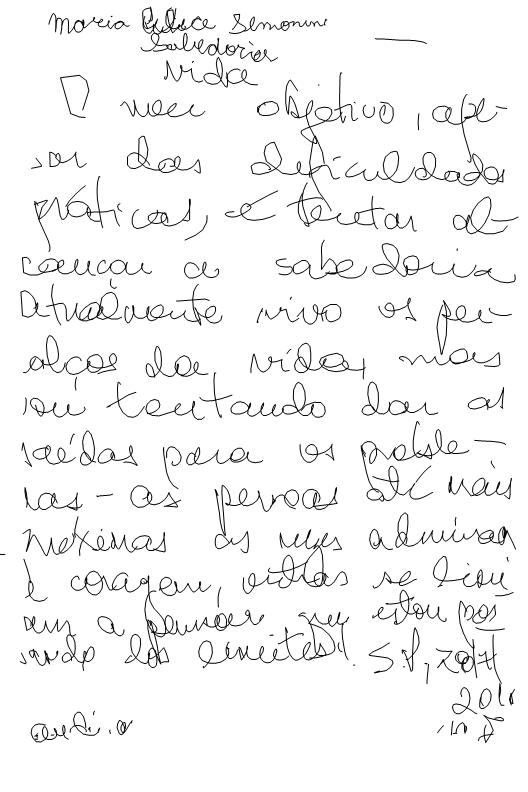 Maria Semonini
Sabedoria
Vida
O meu objetivo, ape-
sar das dificuldades
práticas, é tentar al-
cançar a sabedoria
Atualmente vivo os per-
alços da vida, mas
sou tentando dar as
saídas para os proble-
mas - as pessoas até mais
próximas às vezes admiram
a coragem, outras se limi
tam a pensar que estou pas
sando dos limites! S.P,